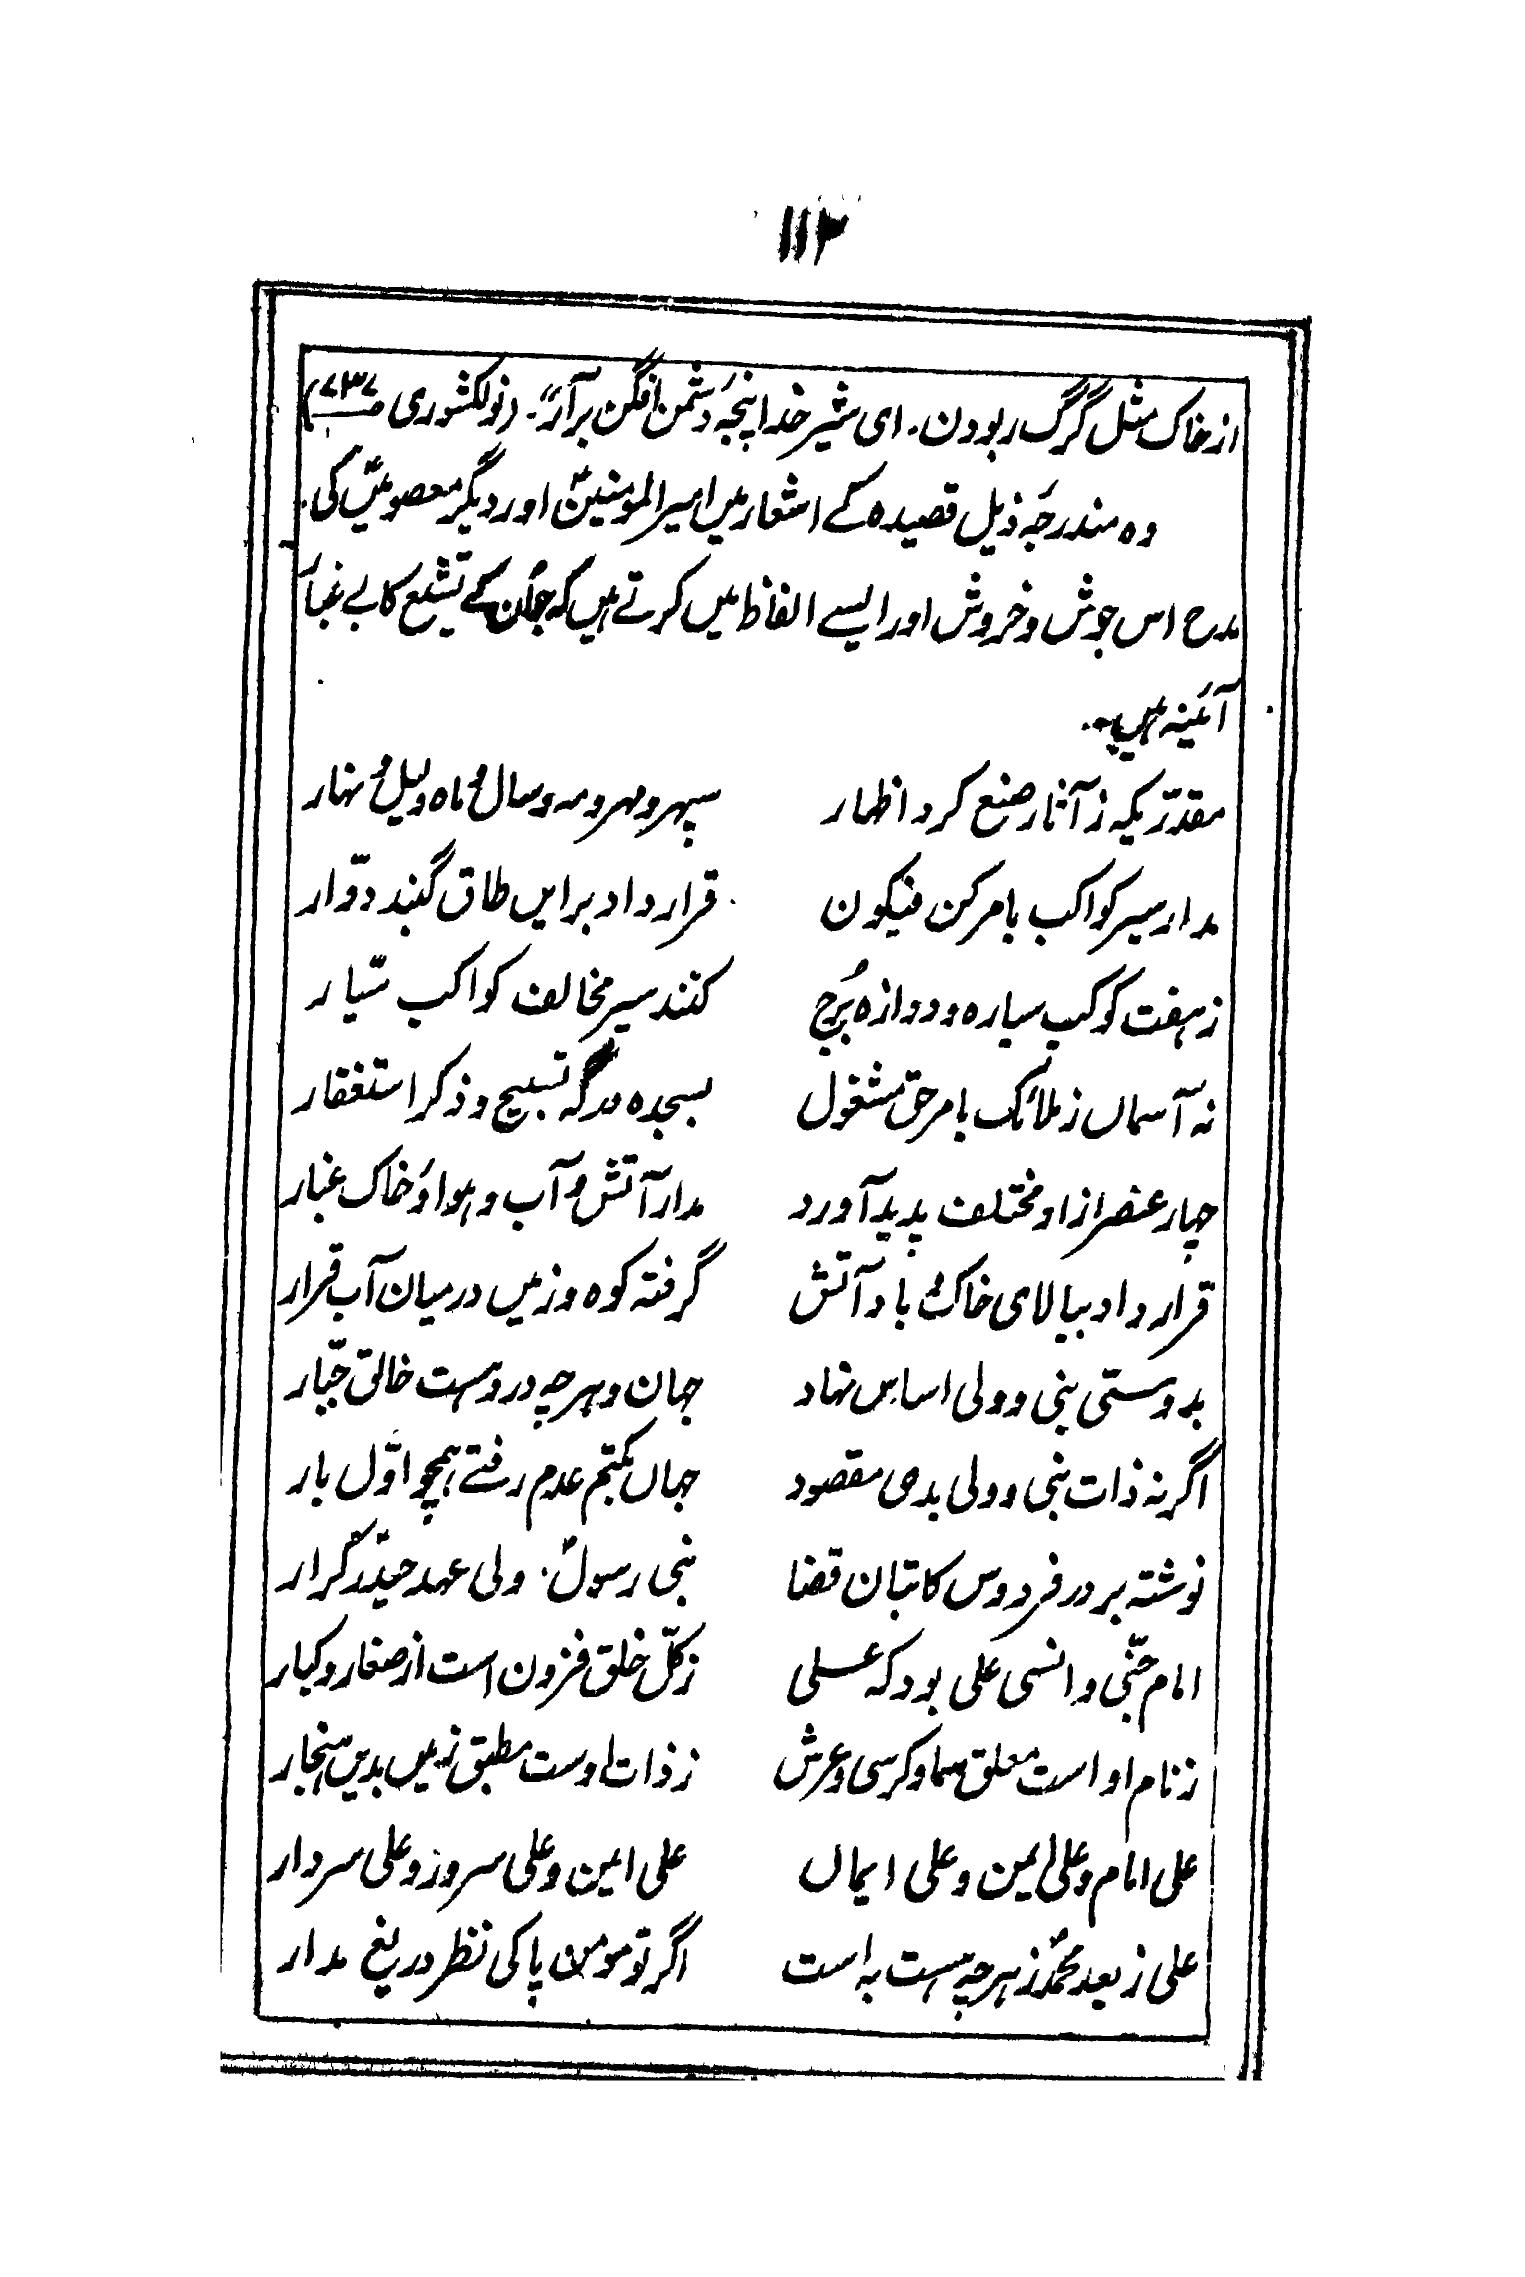 ۱۱۲
از خاک مثل گرگ ربودن۔ ای شیر خدا پنجۂ دشمن افگن برآر"۔ (نولکشوری ص۷۳۷)
وہ مندرجۂ ذیل قصیدہ کے اشعار میں امیر المومنینؑ اور دیگر معصومینؑ کی
مدح اس جوش و خروش اور ایسے الفاظ میں کرتے ہیں کہ جو اُن کے تشیع کا بے غبار
آئینہ ہیں۔
مقدّریکہ ز آثار صنع کرد اظهار سپهر و مهر و مه و سال و ماه و لیل و نهار
مدار سیر کواکب بامر کن فیکون قرار داد برایں طاق گنبد دوّار
ز هفت کوکب سیاره و دوازه بُرج کنند سیر مخالف کواکب سیّار
نہ آسماں ز ملائک بامر حق مشغول بسجده درگہ تسبیح و ذکر استغفار
چہار عنصر ازاو مختلف پدید آورد مدار آتش و آب و ہوا و خاک غبار
قرار داد ببالای خاک و باد آتش گرفتہ کوہ و زمیں درمیان آب قرار
بدوستی نبی و ولی اساس نہاد جہان و ہرچہ دروہست خالق جبّار
اگر نہ ذات نبی و ولی بدی مقصود جہاں بکتم عدم رفتے ہمچو اوّل بار
نوشتہ بر در فردوس کاتبان قضا نبی رسولؐ ولی عہد حیدرؑ کرار
امام جنّی و انسی علی بود کہ علی ز کلّ خلق فزون است از صغار و کبار
ز نام او است معلق سما و کرسی و عرش ز ذات اوست مطبق زمیں بدیں ہنجار
علی امام و علی ایمن و علی ایماں علی امین و علی سرور و علی سردار
علی ز بعد محمدؐ ز ہرچہ ہست بہ است اگر تو مومن پاکی نظر دریغ مدار